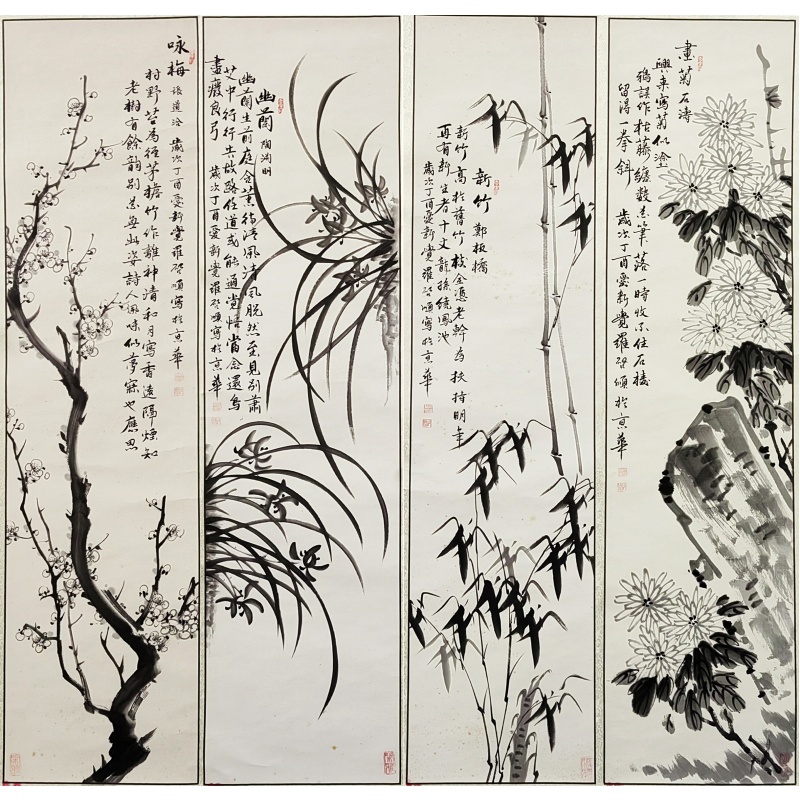 咏梅
張道洽 歲次丁酉愛新覺羅启頌寫於京華
村野苔為徑茅檐竹作籬神清和月寫香遠隔煙知
老樹有餘韻別花無此姿詩人風味似夢寐也應思
幽蘭 陶淵明
幽蘭生前庭含薰待清風清風脫然至見別蕭
艾中行行失故路任道或能通覺悟當念還鳥
盡廢良弓 歲次丁酉愛新覺羅启頌寫於京華
新竹 鄭板橋
新竹高於舊竹枝全憑老幹為扶持明年
再有新生者十丈龍孫繞鳳池
歲次丁酉愛新覺羅启頌寫於京華
畫菊 石濤
興來寫菊似塗
鴉誤作枯藤纏數花筆落一時收不住石棱
留得一拳斜 歲次丁酉愛新覺羅启頌於京華